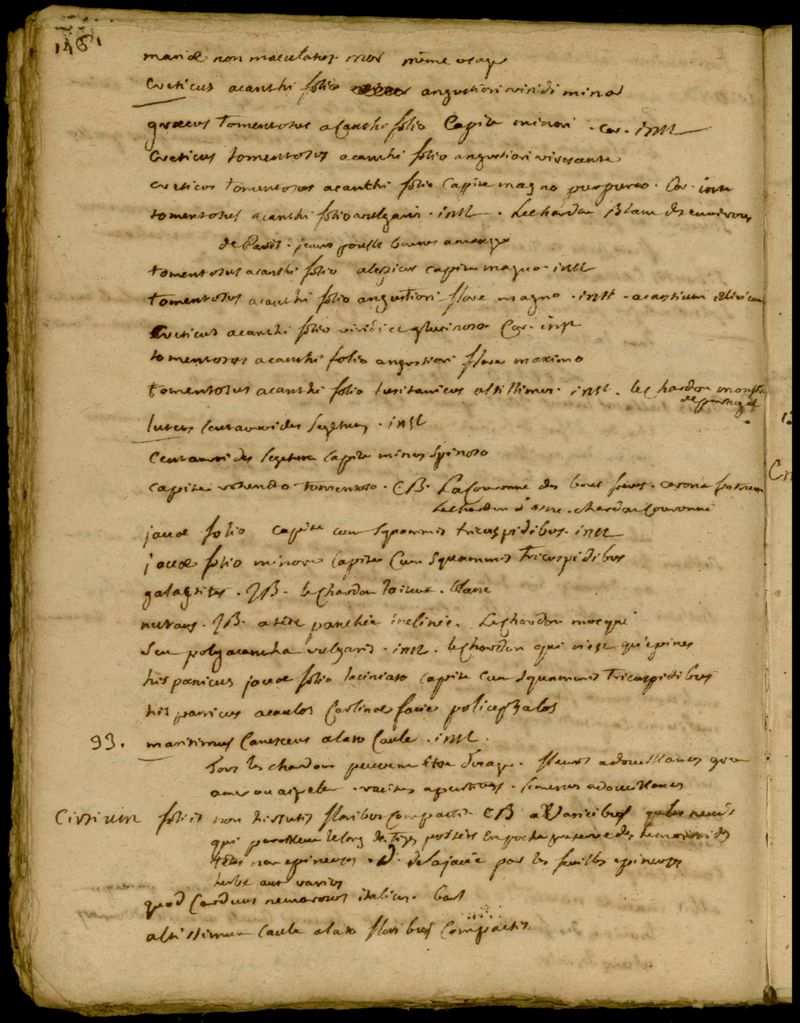 146.
mariæ non maculatus même usage
creticus acanthi folio angustiori viridi minor
græcus tomentosus acanthi folio Capite minori . Cor. inst
creticus tomentosus acanthi folio angustiori virescente
creticus tomentosus acanthi folio Capite magno purpureo . Cor. inst
tomentosus acanthi folio vulgaris . inst . Le chardon Blanc des environs
de Paris .
tomentosus acanthi folio alepicus capite magno . inst
tomentosus acanthi folio angustiori flore magno . inst . acantium illiricum
creticus acanthi folio viridi et glutinoso Cor. inst
tomentosus acanthi folio angustiori flore maximo
tomentosus acanthi folio lusitanicus altissimus . inst . le Chardon
de portugal
luteus Centauroides segetum . inst
Centauroides segetum capite minus spinoso
capite rotundo tomentoso . CB . La Couronne des
le chardon d'asne . chardon Couronné
jaceæ folio capite cum squammis tricuspidibus . inst
jaceæ folio minore Capite Cum squammis tricuspidibus
galactites . JB . le Chardon laiteux . blanc
nutans . JB . a tête panchée inclinée . Le Chardon musqué
seu polyacantha vulgaris . inst . le Chardon qui n'est qu'épines
hispanicus jaceæ folio laciniato capite cum squammis tricuspidibus
hispanicus acaulos Carlinæ facie policephalos
93. maritimus Canescens alato Caule . inst .
Tous les chardons peuvent être d'usage . fleurs
racines aperitives . semences
Cirsium foliis non hirsutis floribus Compactis CB a Varicibus
qui le long des tiges portées en poche preserve des hemorroides
têtes non epineuses . de la jacée par les feuilles epineuses
herbe aux varices
quod Carduus nemorosus italicus . Barl
altissimum Caule alato floribus Compactis